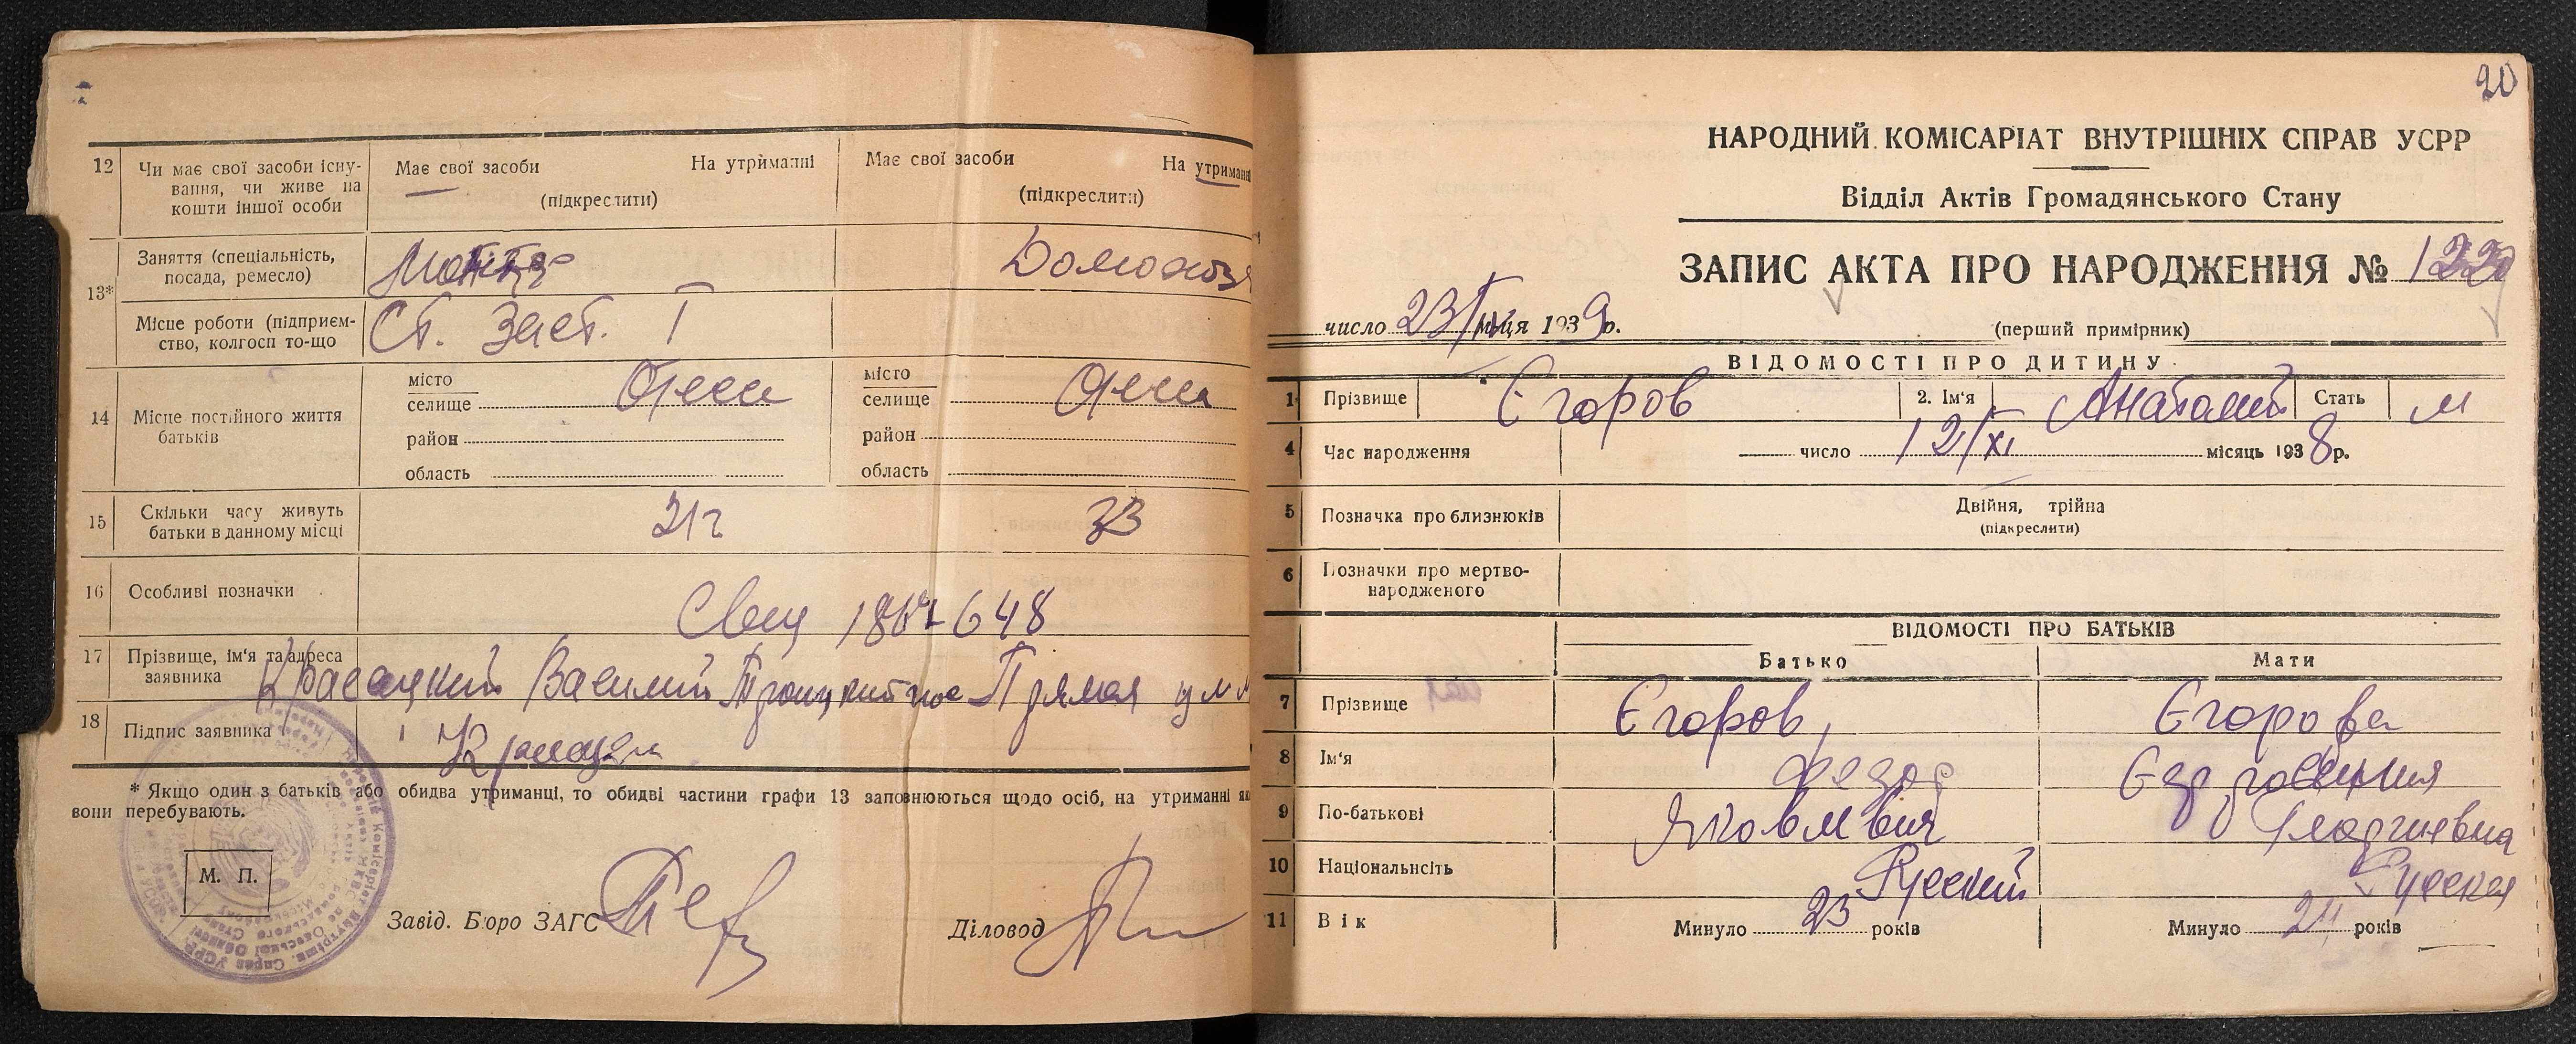 12 Чи має свої засоби існу-
вання, чи живе на
кошти іншої особи
Має свої засоби На утриманні
(підкреслити)
Має свої засоби На утриманні
(підкреслити)
13* Заняття (спеціальність,
посада, ремесло)
Домохоз
Місце роботи (підприєм-
ство, колгосп то-що
Ст. Заст. I
14 Місце постійного життя
батьків
місто
селище Одеса
район
область
місто
селище Одеса
район
область
15 Скільки часу живуть
батьки в данному місці
21г 23
16 Особливі позначки
648
17 Прізвище, ім'я та адреса
заявника
Василий Прямая
18 Підпис заявника
* Якщо один з батьків або обидва утриманці, то обидві частини графи 13 заповнюються щодо осіб, на утриманні як
вони перебувають.
М. П.
Завід. Бюро ЗАГС Діловод
20
НАРОДНИЙ КОМІСАРІАТ ВНУТРІШНІХ СПРАВ УСРР
Відділ Актів Громадянського Стану
ЗАПИС АКТА ПРО НАРОДЖЕННЯ №
число 23/IV м-ця 1939р.
(перший примірник)
ВІДОМОСТІ ПРО ДИТИНУ
1 Прізвище Єгоров 2. Ім'я Анатолий Стать м
4 Час народження число 12/XI місяць 1938р.
5 Позначка про близнюків Двійня, трійна
(підкреслити)
6 Позначки про мертво-
народженого
ВІДОМОСТІ ПРО БАТЬКІВ
Батько Мати
7 Прізвище Єгоров Єгорова
8 Ім'я Федор
9 По-батькові Яковлевич Георгиевна
10 Національнсіть Русский Русская
11 Вік Минуло 23 років Минуло років